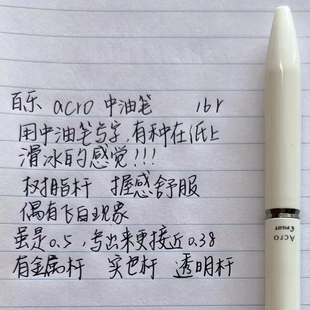 百乐 acro 中油笔 1br
用中油笔写字,有种在纸上
滑冰的感觉!!!
树脂杆 握感舒服
偶有飞白现象
虽是0.5,写出来更接近0.38
有金属杆 实色杆 透明杆
Acro
PILOT